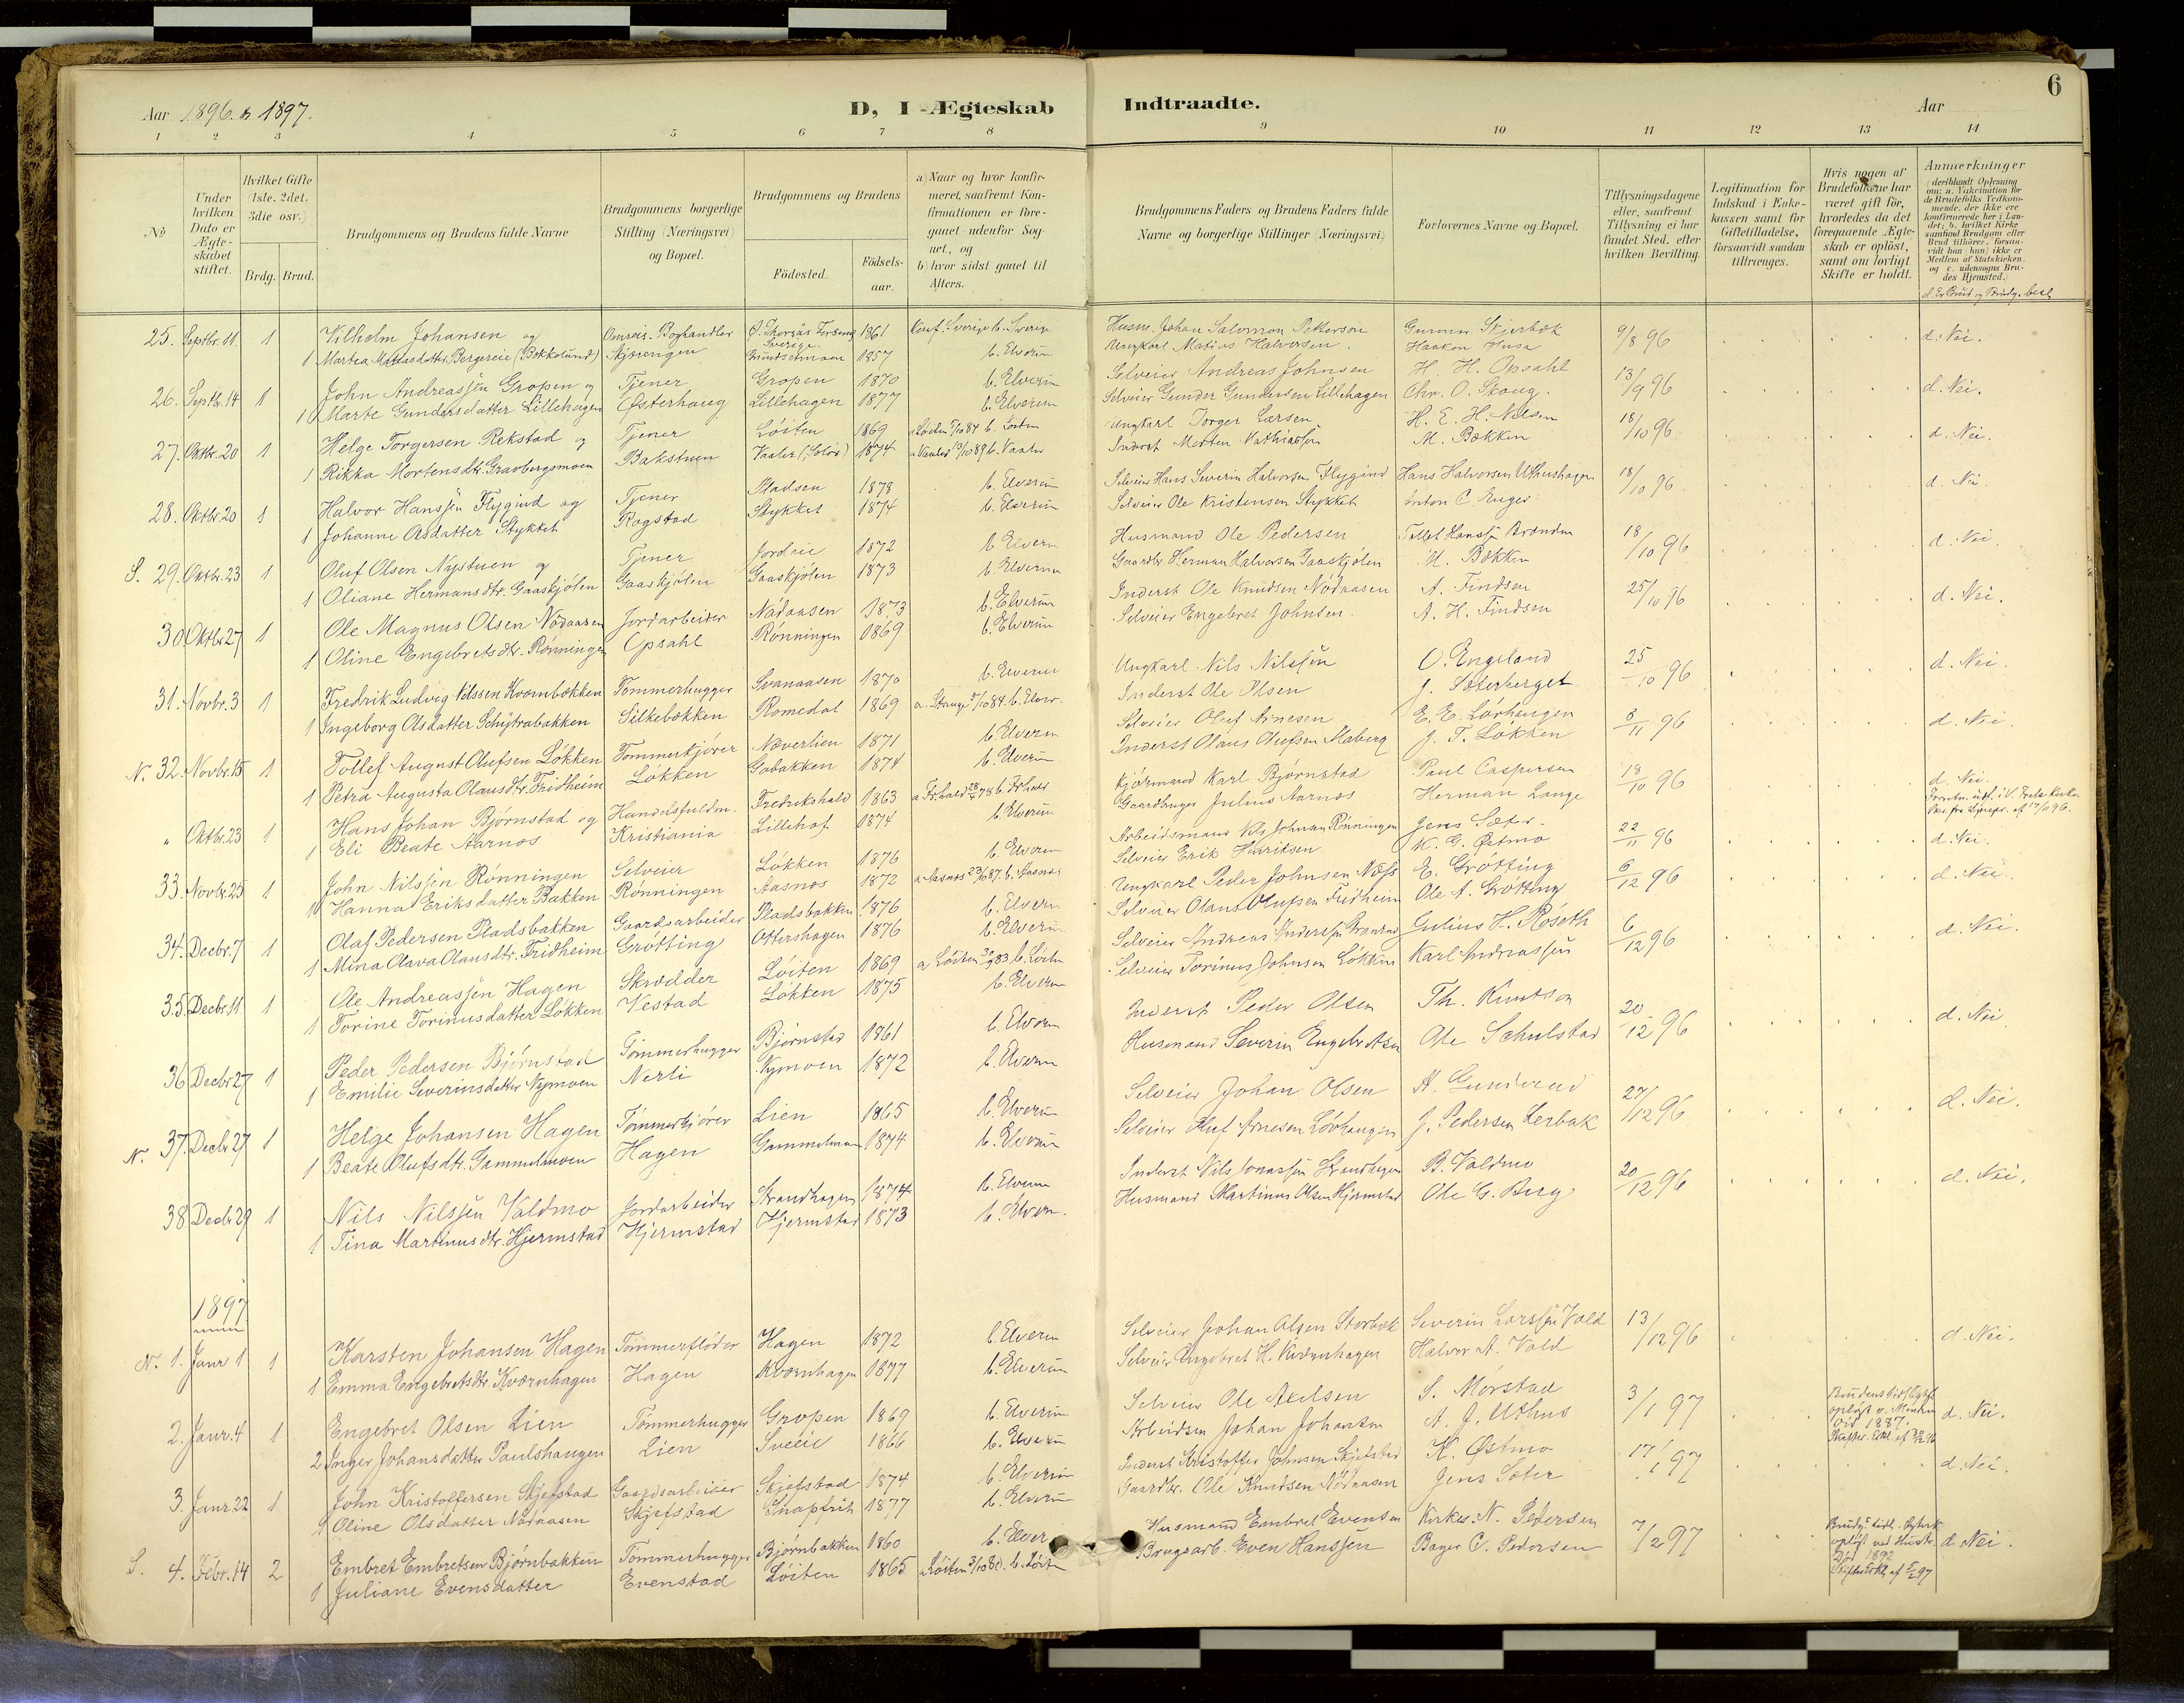 Aar 1896. & 1897.
D, I - Ægteskab Indtraadte.
Aar
6
1 2 3 4 5 6 7 8 9 10 11 12 13 14
No
Under hvilken Dato er Ægteskabet stiftet.
Hvilket Gifte (1ste, 2det, 3die osv.)
Brdg. Brud.
Brudgommens og Brudens fulde Navne
Brudgommens borgerlige Stilling (Næringsvei) og Bopæl.
Brudgommens og Brudens
Födested.
Födselsaar.
a) Naar og hvor konfirmeret, saafremt Konfirmationen er foregaaet udenfor Sognet, og
b) hvor sidst gaaet til Alters.
Brudgommens Faders og Brudens Faders fulde Navne og borgerlige Stillinger (Næringsvei)
Forlovernes Navne og Bopæl.
Tillysningsdagene eller, saafremt Tillysning ei har fundet Sted, efter hvilken Bevilling.
Legitimation for Indskud i Enkekassen samt for Giftetilladelse, forsaavidt saadan tiltrænges.
Hvis nogen af Brudefolkene har været gift för, hvorledes da det foregaaende Ægteskab er oplöst, samt om lovligt Skifte er holdt.
Anmærkninger
(deriblandt Oplysning om: a. Vakcination for de Brudefolks Vedkommende, der ikke ere konfirmerede her i Landet; b. hvilket Kirkesamfund Brudgom eller Brud tilhörer, forsaavidt han (hun) ikke er Medlem af Statskirken og c. udensogns Brudes Hjemsted.)
d. Er Brud og Brudg. besl.
25. Septbr. 11. 1 Vilhelm Johansen og Omreis. Boghandler 1861 Konf. Sverige b. Sverige Husm. Johan Salomon Petterson Gunnar Skjerbæk 9/8 96 d. Nei.
1 Martea Matiasdatter Bergereie (Bækkelund) Grundsetmoen 1857 b. Elverum Ungkarl Matias Halvorsen. Haakon Husa
26. Septbr. 14 1 John Andreassen Gropen og Tjener Gropen 1870 b. Elverum Selveier Andreas Johnsen H. H. Opsahl 13/9 96 d. Nei.
1 Marte Gundersdatter Lillehagen Østerhaug Lillehagen 1877 b. Elverum Selveier Gunder Gundersen Lillehagen Chr. O. Skaug.
27. Oktbr. 20 1 Helge Torgersen Rekstad og Tjener Löiten 1869 a Löiten 5/10 84 b. Löiten Ungkarl Torger Larsen H. E. H. Nilsen 18/10 96 d. Nei.
1 Rikka Mortensdtr. Gravbergsmoen Bakstuen Vaaler (Solör) 1874 a Vaaler 13/10 89 b. Vaaler Inderst Morten Mathiassen M. Bækken
28. Oktbr. 20 1 Halvor Hanssen Flygind og Tjener Pladsen 1873 b. Elverum Selveier Hans Severin Halvorsen Flygind Hans Halvorsen Uthushagen 18/10 96 d. Nei.
1 Johanne Olsdatter Stykket Rogstad Stykket 1874 b. Elverum Selveier Ole Kristensen Stykket Anton C. Enger
S. 29. Oktbr. 23 1 Oluf Olsen Nystuen og Tjener Jordeie 1872 b. Elverum Husmand Ole Pedersen Tollef Hanssen Brænden 18/10 96 d. Nei.
1 Oliane Hermansdtr. Gaaskjölen Gaaskjölen Gaaskjölen 1873 b. Elverum Gaardbr. Herman Halvorsen Gaaskjölen M. Bækken
30. Oktbr. 27 1 Ole Magnus Olsen Nödaasen Jordarbeider Nödaasen 1873 b. Elverum Inderst Ole Knudsen Nödaasen A. Findsen 25/10 96 d. Nei.
1 Oline Engebretsdtr. Rönningen Opsahl Rönningen 1869 b. Elverum Selveier Engebret Johnsen A. H. Findsen
31. Novbr. 3 1 Fredrik Ludvig Nilssen Kværnbækken Tömmerhugger Svanaasen 1870 b. Elverum Ungkarl Nils Nilssen O. Engeland 25/10 96 d. Nei.
1 Ingeborg Olsdatter Schytrabakken Silkebækken Romedal 1869 a. Stange 5/10 84. b. Elver. Inderst Ole Olsen J. Sæterberget
N. 32. Novbr. 15 1 Tollef August Olufsen Løkken Tømmerkjører Næverlien 1871 b. Elverum Selveier Oluf Arnesen E. E. Lövhaugen 8/11 96 d. Nei.
1 Petra Augusta Olausdtr. Fridheim Løkken Gobakken 1874 b. Elverum Inderst Olaus Olufsen Moberg J. T. Løkken
" Oktbr. 23 1 Hans Johan Bjørnstad og Handelsfuldm. Fredrikshald 1863 a Fr.hald 28/4 78 b. Frhald Kjörmand Karl Bjørnstad Paul Caspersen 18/10 96 d. Nei.
1 Eli Beate Aarnæs Kristiania Lillehof 1874 b. Elverum Gaardbruger Julius Aarnæs Herman Lange
33. Novbr. 25 1 John Nilssen Rønningen Selveier Løkken 1876 b. Elverum Arbeidsmand Nils Johnsen Rønningen Jens Sæter. 22/11 96 d. Nei.
1 Hanna Eriksdatter Bakken Rønningen Aasnæs 1872 a Aasnæs 23/10 87. b. Aasnæs Selveier Erik Henriksen K. G. Østmo
34. Decbr. 7 1 Olaf Pedersen Pladsbakken Gaardsarbeider Pladsbakken 1876 b. Elverum Ungkarl Peder Johnsen Næss E. Grøtting 6/12 96 d. Nei.
1 Mina Olava Olausdtr. Fridheim Grøtting Ottershagen 1876 b. Elverum Selveier Olaus Olufsen Fridheim Ole A. Grøtting
35. Decbr. 11 1 Ole Andreassen Hagen Skrædder Löiten 1869 a Löiten 30/9 83 b. Löiten Selveier Andreas Andersen Julius H. Röseth 6/12 96 d. Nei.
1 Torine Torinusdatter Løkken Vestad Løkken 1875 b. Elverum Selveier Torinus Johnsen Løkken Karl Andreassen
36 Decbr. 27 1 Peder Pedersen Bjørnstad Tömmerhugger Bjørnstad 1861 b. Elverum Inderst Peder Olsen Th. Knutson 20/12 96 d. Nei
1 Emilie Severinsdatter Nymoen Nerli Nymoen 1872 b. Elverum Husmand Severin Engebretsen Ole Schulstad
N. 37. Decbr. 27 1 Helge Johansen Hagen Tømmerkjører Lien 1865 b. Elverum Selveier Johan Olsen A. Gunderud 27/12 96 d. Nei.
1 Beate Olufsdtr. Gammelmoen Hagen Gammelmoen 1874 b. Elverum Selveier Oluf Arnesen Lövhaugen J. Pedersen Lerbak
38 Decbr. 29 1 Nils Nilssen Valdmo Jordarbeider Strandhagen 1874 b. Elverum Inderst Nils Jonassen Strandhagen B. Valdmo 20/12 96 d. Nei.
1 Tina Martinusdtr. Hjermstad Hjermstad Hjermstad 1873 b. Elverum. Husmand Martinus Olsen Hjermstad Ole G. Berg
1897
N. 1. Janr 1 1 Karsten Johansen Hagen Tømmerfløder Hagen 1872 b. Elverum Selveier Johan Olsen Storbæk Severin Larssen Vold 13/12 96 d. Nei.
1 Emma Engebretsdtr. Kværnhagen Hagen Kværnhagen 1877 b. Elverum Selveier Engebret H. Kværnhagen Halvor A. Vold
2. Janr. 4 1 Engebret Olsen Lien Tømmerhugger Gropen 1869 b. Elverum Selveier Ole Axelsen S. Mørstad 3/1 97 d. Nei.
2 Inger Johansdatter Paulshaugen Lien Sveeie 1866 b. Elverum Arbeidsm Johan Johansen A. J. Uthus
3. Janr. 22 1 John Kristoffersen Skjefstad Gaardsarbeider Skjefstad 1874 b. Elverum Inderst Kristoffer Johnsen Skjefstad K. Østmo 17/1 97 d. Nei.
1 Oline Olsdatter Nödaasen Skjefstad Snapfrit 1877 b. Elverum Gaardbr. Ole Knudsen Nödaasen Jens Sæter
S. 4. Febr. 14 2 Embret Embretsen Bjørnbakken Tømmerhugger Bjørnbakken 1860 b. Elver Husmand Embret Evensen Kirkes. N. Pedersen 7/2 97 d. Nei.
1 Juliane Evensdatter Evenstad Löiten 1865 a. Löiten 3/10 80. b. Löiten Brugsarb. Even Hanssen Bager C. Pedersen